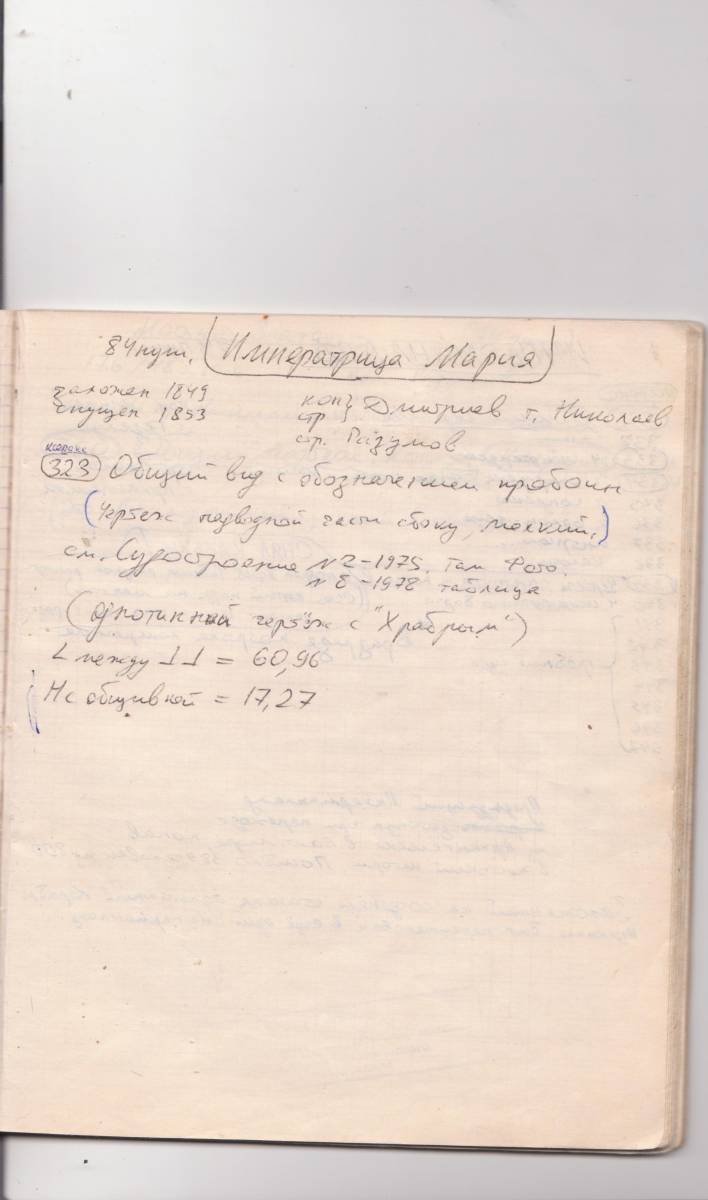 84 пуш. Императрица Мария
заложен 1849
спущен 1853
кон стр } Дмитриев г. Николаев
стр. Разумов
323 Общий вид с обозначением пробоин
(Чертеж подводной части сбоку,
см. Судостроение N 2-1975. Там фото.
N 8-1978 таблица
(однотипный чертёж с "Храбрым")
L между ⊥⊥ = 60,96
Н с обшивкой = 17,27